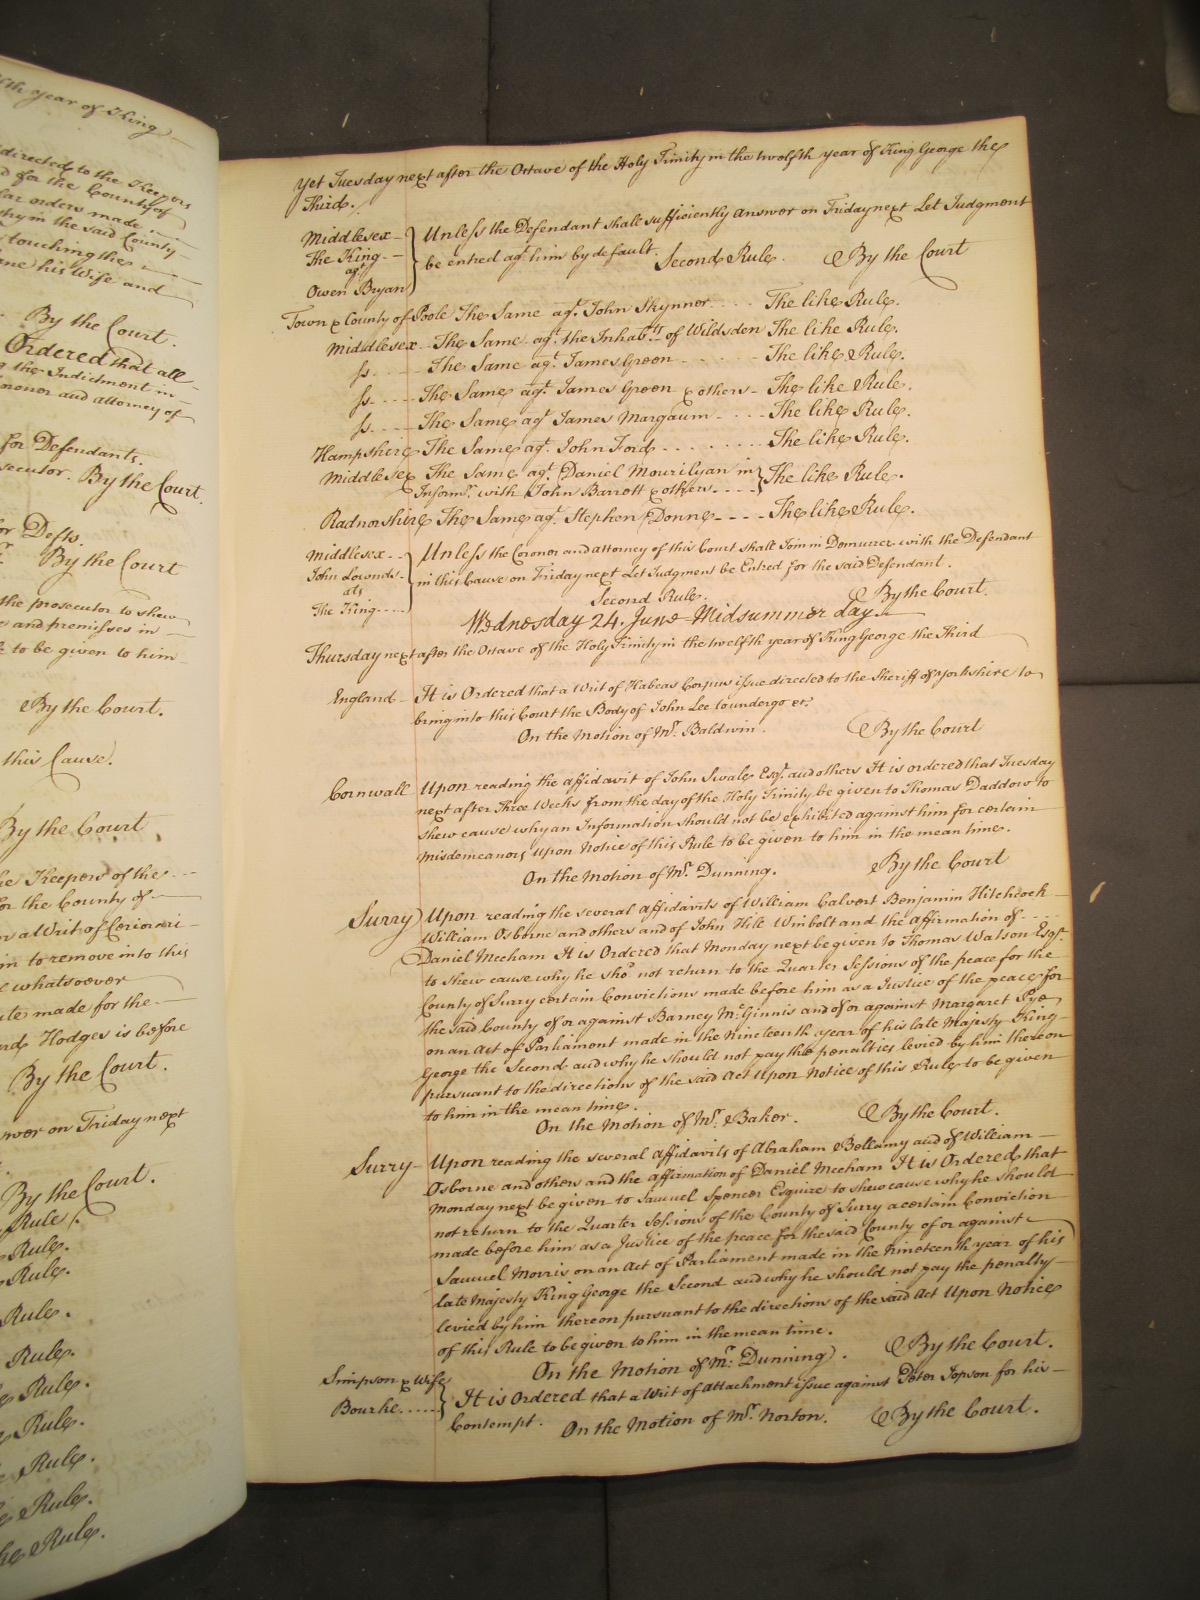 fth year of King
directed to the Keepers
d for the County of
lar orders made
in the said County
touching the
ane his Wife and
By the Court.
Ordered that all
g the Indictment in
oroner and attorney of
for Defendants.
secutor. By the Court.
or Defts.
By the Court
the prosecutor to shew
e and premisses in
to be given to him
By the Court.
this Cause.
By the Court
he Keepers of the
or the County of
or a Writ of Certiorari
in to remove into this
e whatsoever
ute made for the
ard Hodges is before
By the Court.
swer on Friday next
By the Court.
Rule.
Rule.
Rule.
Rule.
Rule.
Rule.
Rule.
Rule.
Rule.
Rule.
Yet Tuesday next after the Octave of the Holy Trinity in the twelfth year of King George the
Third.
Middlesex Unless the Defendant shall sufficiently answer on Friday next Let Judgment
The King
agt be entred agt him by default. Second Rule. By the Court
Owen Bryan
Town & County of Poole The Same agt. John Skynner The like Rule.
Middlesex The Same agt. the Inhabts. of Wilsden The like Rule.
ss The Same agt. James Green The like Rule.
ss The Same agt. James Green & others The like Rule.
ss The Same agt James Margaum The like Rule.
Hampshire The Same agt. John Ford The like Rule.
Middlesex The Same agt Daniel Mourilyan in The like Rule.
Informn. with John Barrott & others
Radnorshire The Same agt. Stephen Donne The like Rule.
Middlesex Unless the Coroner and attorney of this Court shall Join in Demurrer with the Defendant
John Lownds in this Cause on Friday next Let Judgment be Entred for the said Defendant.
ats
The King Second Rule. By the Court.
Wednesday 24. June Midsummer day
Thursday next after the Octave of the Holy Trinity in the twelfth year of King George the Third
England It is Ordered that a Writ of Habeas Corpus issue directed to the Sheriff of Yorkshire to
bring into this Court the Body of John Lee to undergo &c.
On the Motion of Mr. Baldwin. By the Court
Cornwall Upon reading the affidavit of John Swale Esqr. and others It is ordered that Tuesday
next after Three Weeks from the day of the Holy Trinity be given to Thomas Daddow to
shew cause why an Information should not be exhibited against him for certain
misdemeanors upon Notice of this Rule to be given to him in the mean time.
On the Motion of Mr. Dunning. By the Court
Surry Upon reading the several affidavits of William Calvert Benjamin Hitchcock
William Osborne and others and of John Hill Winbolt and the affirmation of
Daniel Meeham It is Ordered that Monday next be given to Thomas Watson Esqr.
to shew cause why he shod not return to the Quarter Sessions of the peace for the
County of Surry certain Convictions made before him as a Justice of the peace for
the said County of or against Barney McGinnis and of or against Margaret Pye
on an Act of Parliament made in the Nineteenth year of his late Majesty King
George the Second and why he should not pay the penalties levied by him thereon
pursuant to the directions of the said Act Upon Notice of this Rule to be given
to him in the mean time.
On the Motion of Mr. Baker. By the Court.
Surry Upon reading the several affidavits of Abraham Bellamy and of William
Osborne and others and the affirmation of Daniel Meeham It is Ordered that
Monday next be given to Samuel Spencer Esquire to shew cause why he should
not return to the Quarter Sessions of the County of Surry a certain Conviction
made before him as a Justice of the peace for the said County of or against
Samuel Morris on an Act of Parliament made in the Nineteenth year of his
late Majesty King George the Second and why he should not pay the penalty
levied by him thereon pursuant to the directions of the said Act Upon Notice
of this Rule to be given to him in the mean time.
On the Motion of Mr. Dunning. By the Court.
Simpson & Wife
Bourke It is Ordered that a Writ of attachment issue against Peter Jopson for his
Contempt. On the Motion of Mr. Norton. By the Court.